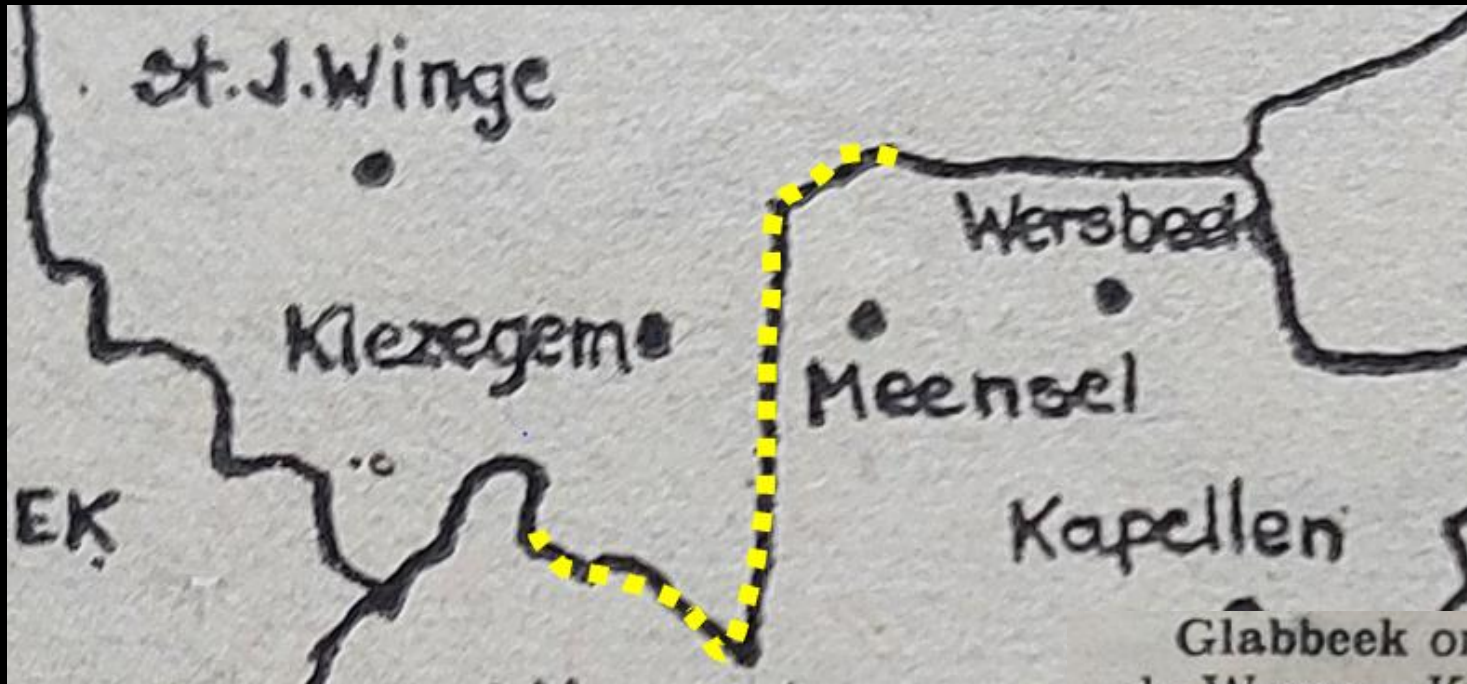 St.J.Winge
Wersbeek
Kiezegem
Meensel
EK
Kapellen
Glabbeek